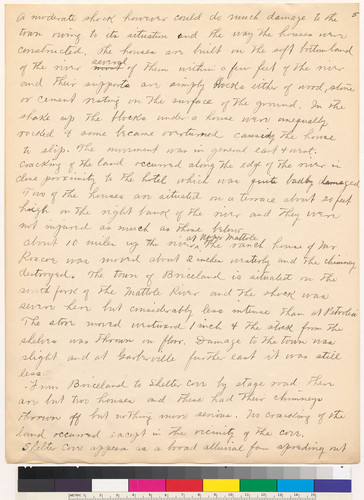 5
A moderate shock however could do much damage to the
town owing to its situation and the way the houses were
constructed. The houses are built on the soft bottom land
of the river several of them within a few feet of the river
and their supports are simply blocks either of wood, stone
or cement resting on the surface of the ground. In the
shake up the blocks under a house were unequally
rocked & some became overturned causing the house
to slip. The movement was in general east & west.
Cracking of the land occurred along the edge of the river in
close proximity to the hotel which was quite badly damaged
Two of the houses are situated on a terrace about 20 feet
high on the right bank of the river and they were
not injured as much as those below
about 10 miles up the river at Upper Mattole the ranch house of Mr
Roscoe was moved about 2 miles westerly and the chimney
destroyed. The town of Briceland is situated on the
south fork of the Mattole River and the shock was
severe here but considerably less intense than at Petrolia
The store moved westward 1 inch & the stock from the
shelves was thrown on floor. Damage to the town was
slight and at Garberville further east it was still
less.
From Briceland to Shelter Cove by stage road there
are but two houses and these had their chimneys
thrown off but nothing more serious. No cracking of the
land occurred except in the vicinity of the cove.
Shelter Cove appears as a broad alluvial fan spreading out